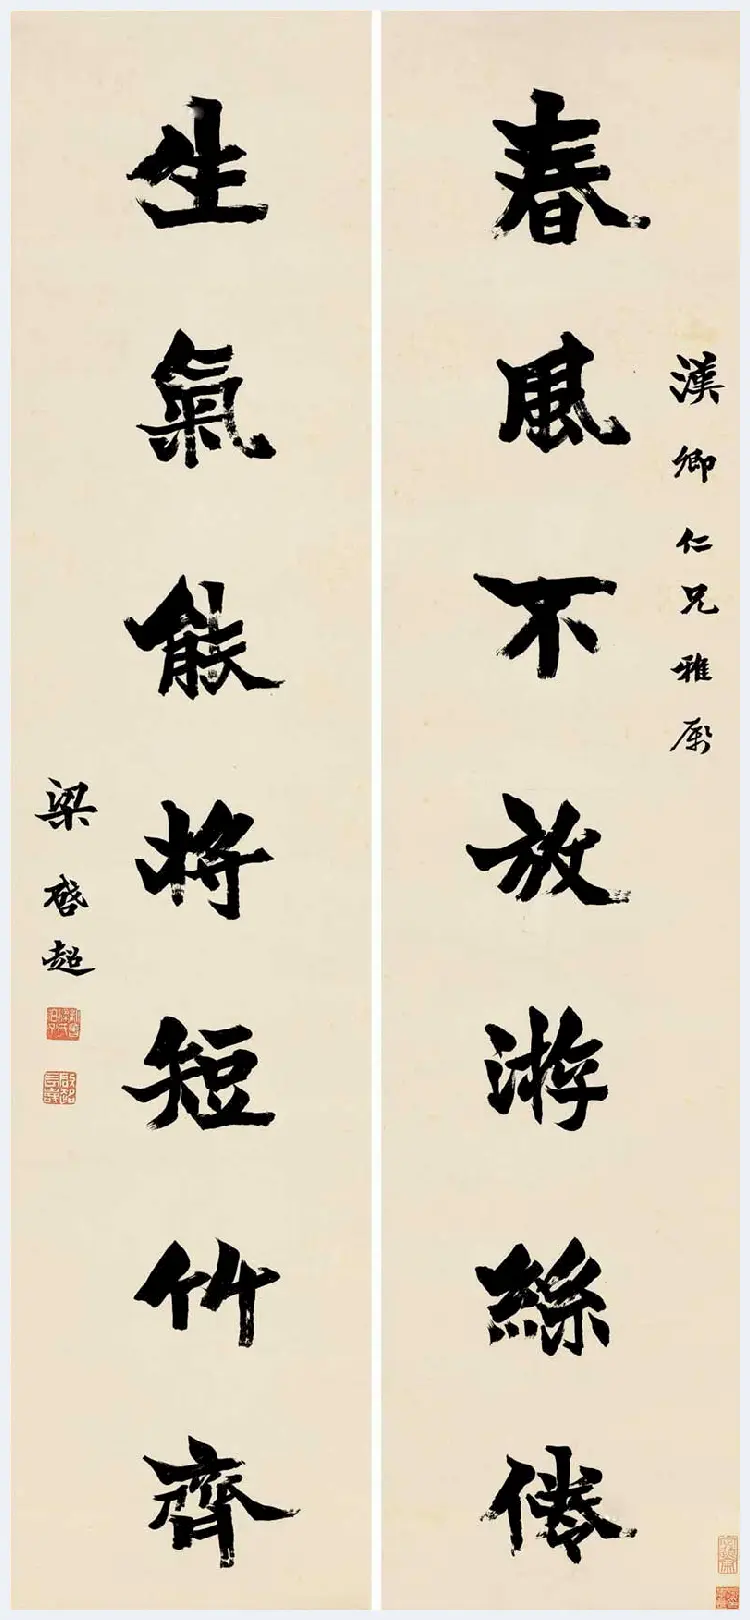 漢卿仁兄雅屬
春風不放游絲倦
生氣能將短竹齊
梁啓超